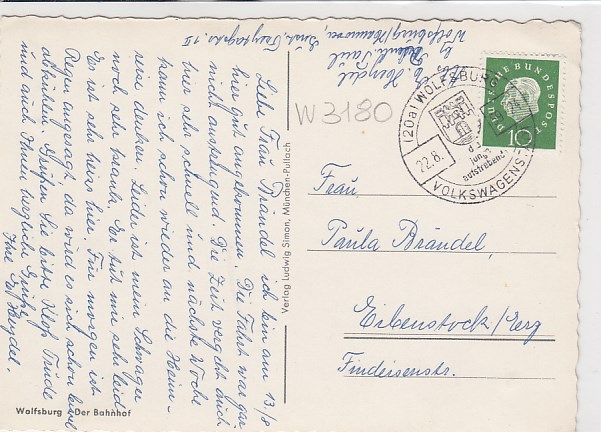 Liebe Frau Brändel, ich bin am 13/8
hier gut angekommen. Die Fahrt war gar
nicht anstrengend. Die Zeit vergeht auch
hier sehr schnell und nächste Woche
kann ich schon wieder an die Heim-
reise denken. Leider ist mein Schwager
noch sehr krank. Er tut mir sehr leid.
Es ist sehr heiss hier. Für morgen ist
Regen angesagt, da wird es sich schon
abkühlen. Grüßen Sie bitte Trude
und auch Ihnen herzliche Grüße
Ihre E. Heydel.
Wolfsburg
W 3180
Verlag Ludwig Simon, München-Pullach
DEUTSCHE BUNDESPOST
10
(20a) WOLFSBURG
22.8.
d
jungen
aufstrebende
VOLKSWAGENS
Frau
Paula Brändel,
Eibenstock/Erzg
Findeisenstr.
Wolfsburg Der Bahnhof